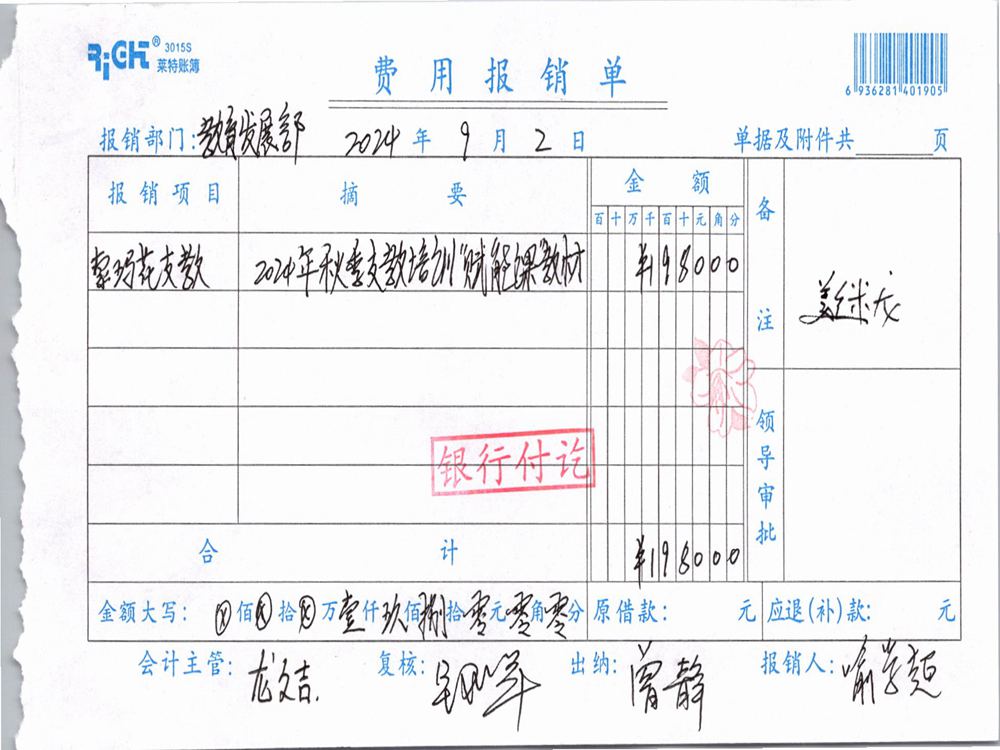 RiGHT® 3015S
莱特账簿
费用报销单
6 936281 401905
报销部门:教育发展部 2024年9月2日 单据及附件共 页
报销项目 摘要 金额 备注
百十万千百十元角分
索玛花支教 2024年秋季支教培训"赋能课"教材 ¥198000
银行付讫
领导审批
合计 ¥198000
金额大写: ⊗佰⊗拾⊗万壹仟玖佰捌拾零元零角零分 原借款: 元 应退(补)款: 元
会计主管: 龙文吉 复核: 出纳: 曾静 报销人: